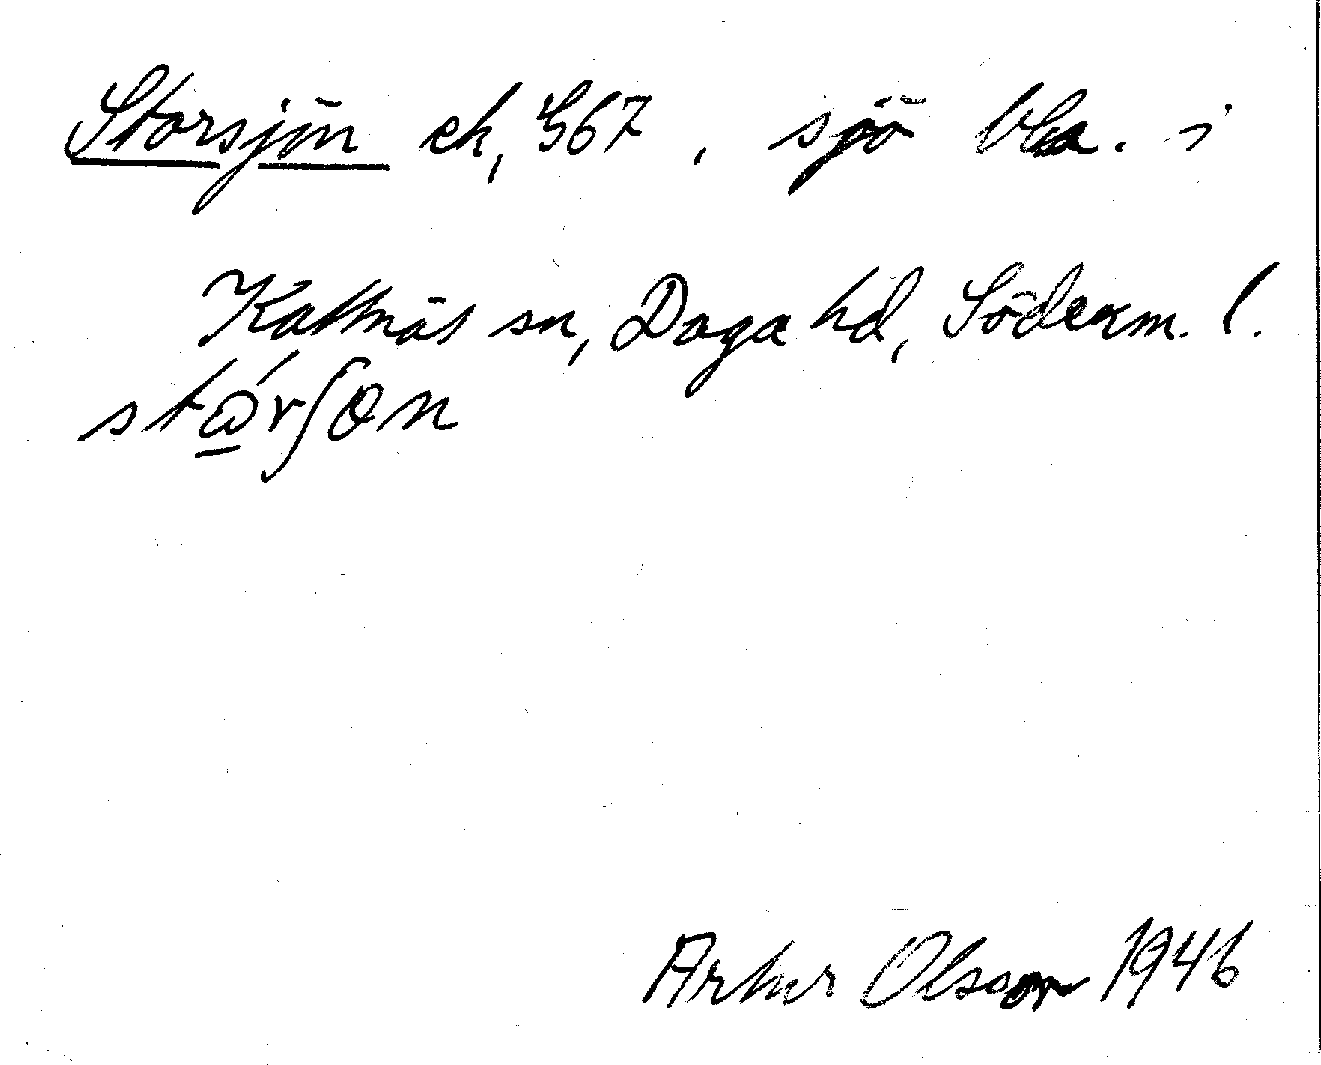 Storsjön ek, 567, sjö bla. i
Kattnäs sn, Daga hd, Söderm. l.
Artur Olsson 1946